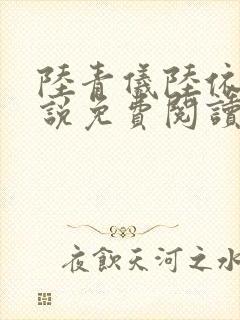 陸青儀陸依
說免費閱讀
夜飲天河之水